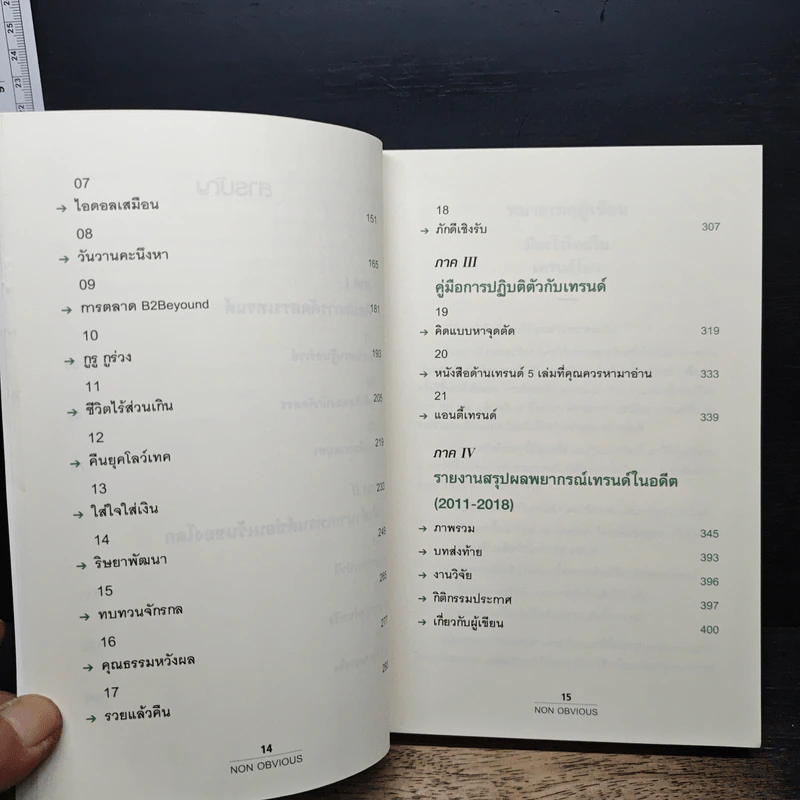 07
→ ไอดอลเสมือน 151
08
→ วันวานคะนึงหา 165
09
→ การตลาด B2Beyound 181
10
→ กูรู กูร่วง 193
11
→ ชีวิตไร้ส่วนเกิน 205
12
→ คืนยุคโลว์เทค 219
13
→ ใส่ใจใส่เงิน 233
14
→ ริษยาพัฒนา 249
15
→ ทบทวนจักรกล 265
16
→ คุณธรรมหวังผล 277
17
→ รวยแล้วคืน
14
NON OBVIOUS
18
→ ภักดีเชิงรับ 307
ภาค III
คู่มือการปฏิบติตัวกับเทรนด์
19
→ คิดแบบหาจุดตัด 319
20
→ หนังสือด้านเทรนด์ 5 เล่มที่คุณควรหามาอ่าน 333
21
→ แอนตี้เทรนด์ 339
ภาค IV
รายงานสรุปผลพยากรณ์เทรนด์ในอดีต
(2011-2018)
→ ภาพรวม 345
→ บทส่งท้าย 393
→ งานวิจัย 396
→ กิติกรรมประกาศ 397
→ เกี่ยวกับผู้เขียน 400
15
NON OBVIOUS